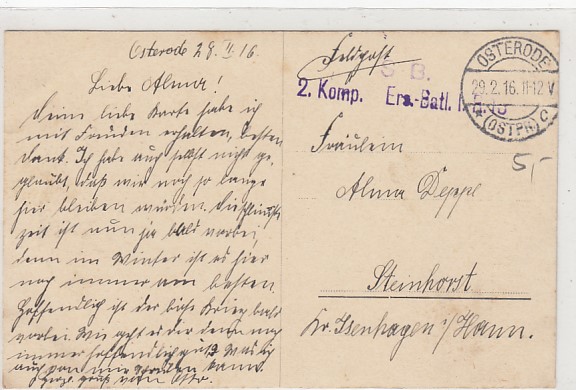 Osterode 28. II. 16.
Liebe Alma!
Deine liebe Karte habe ich
mit Freuden erhalten, besten
Dank. Ich habe auch selbst nicht ge-
glaubt, daß wir noch so lange
hier bleiben würden. Die
zeit ist nun ja bald vorbei,
denn im Winter ist es hier
noch immer am besten
Hoffentlich ist der Krieg bald
vorbei. Wie geht es dir denn noch
immer hoffentlich gut
auf von mir kann.
gruß von Otto.
Feldpost
S. B.
2. Komp. Ers.-Batl.
OSTERODE
29.2.16. 11-12 V
* (OSTPR) C
Fräulein
Alma
5,-
Steinhorst
Kr. Isenhagen i/Hann.